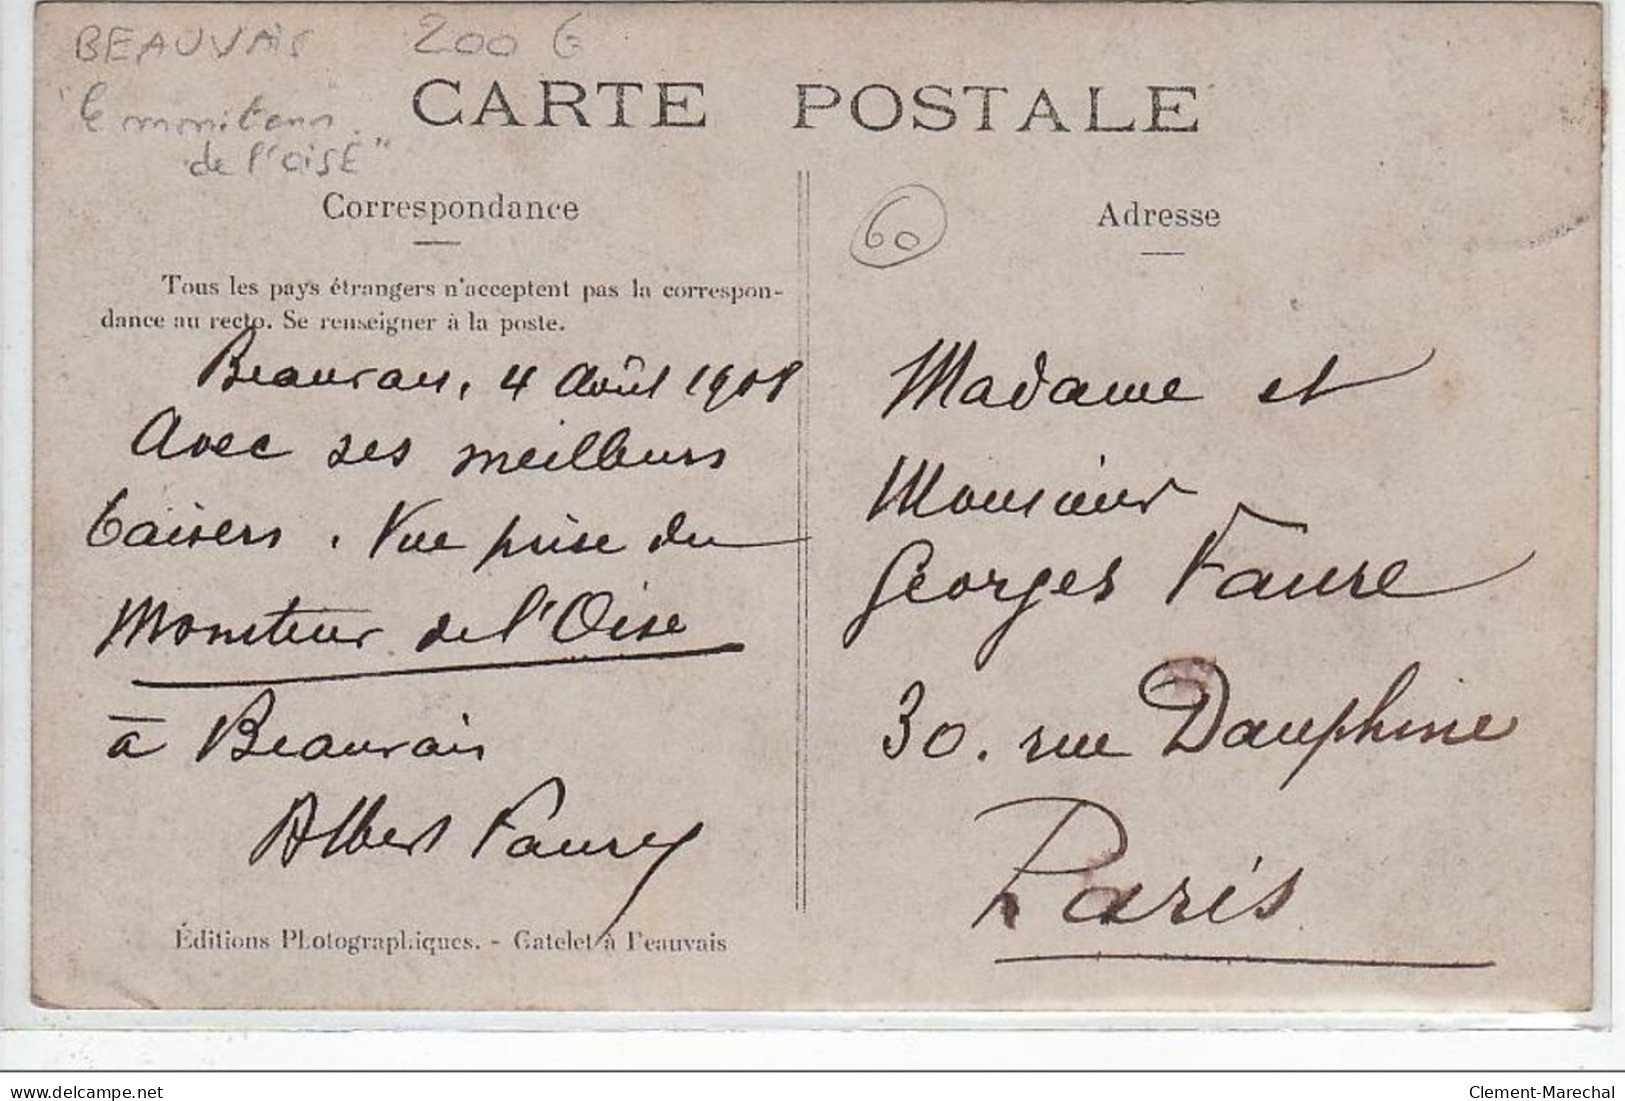 BEAUVAIS 200 €
"le moniteur
de l'OISE"
CARTE POSTALE
Correspondance
Tous les pays étrangers n'acceptent pas la correspon-
dance au recto. Se renseigner à la poste.
Beauvais, 4 Août 1908
Avec ses meilleurs
baisers. Vue prise du
Moniteur de l'Oise
à Beauvais
Albert Faurey
Éditions Photographiques. - Gatelet à Beauvais
60
Adresse
Madame et
Monsieur
Georges Faure
30. rue Dauphine
Paris
delcampe.net
Clement-Marechal